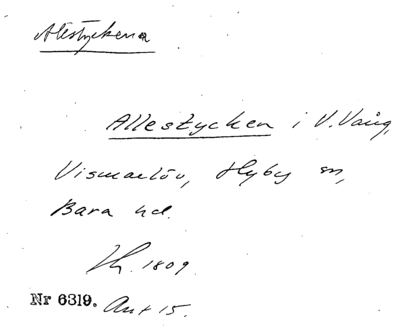 Allestyckena
Allestycken i V. Vång,
Vismarlöv, Hyby sn,
Bara hd.
1809.
Nr 6319. Akt 15.